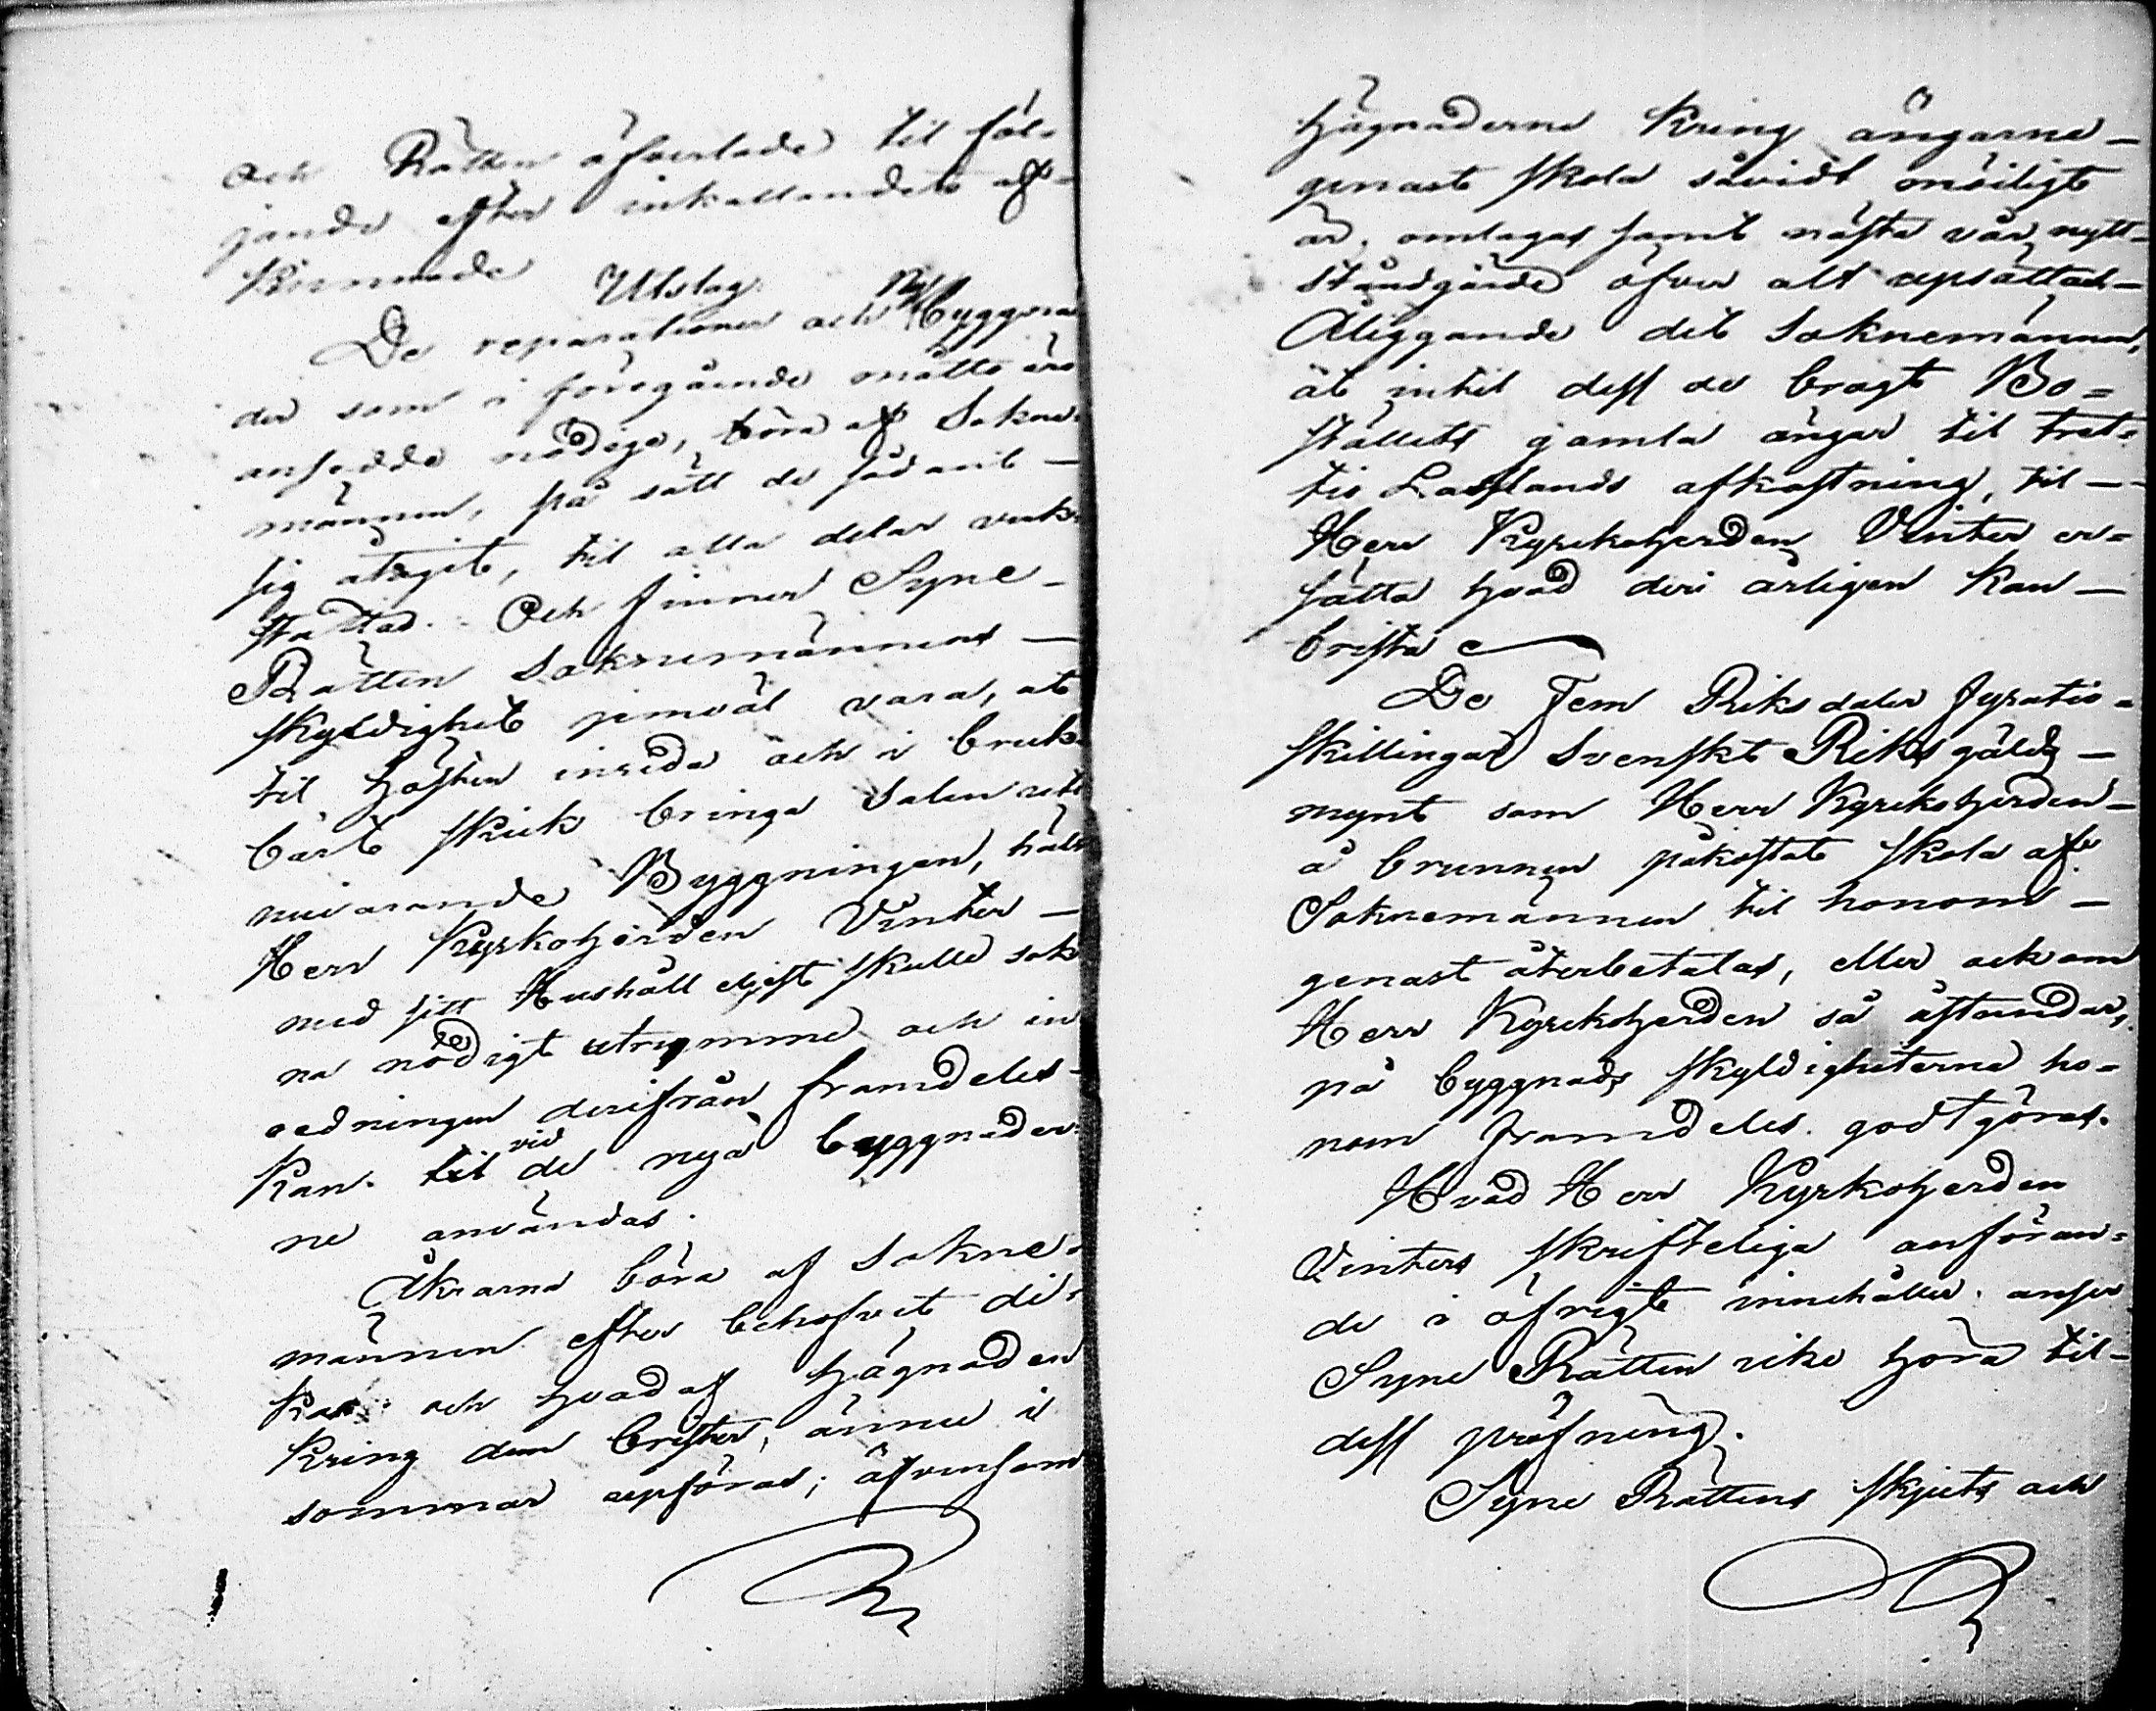 och Rätten öfverlade til föl-
jande efter inkallandet af-
kunnade Utslag.
De reparationer och Ny byggna
der som i föregående måtto äro
ansedde nödige, böra af Sokne-
männen, på sätt de sådant —
sig åtagit, til alla delar verk-
ställas. Och finner Syne-
Rätten Soknemännens —
skyldighet jemväl vara, at
til hösten inreda och i bruk-
bart skick bringa Salen uti
nuvarande Byggningen, hälst
Herr Kyrkoherden Vinter —
med sitt Hushåll eljest skulle sak-
na nödigt utrymme och in
redningen derifrån framdeles
kan til vid de nya byggnader-
ne användas.
Åkrarna böra af Sokne-
männen efter behofvet di-
kas och hvad af hägnaden
kring dem brister, ännu i
sommar upföras; äfvensom
hägnaderna kring ängarne —
genast skola såvidt möiligt
är, omlagas samt nästa vår nytt-
ståndgärde öfver alt upsättas —
Åliggande det Soknemännen,
at intil dess de bragt Bo-
ställets gamla ängar til Tret-
tio Lasslands afkastning, til —
Herr Kyrckoherden Vinter er-
sätta hvad deri årligen kan —
brista
De Fem Riksdaler fyratio-
skillingar Svenskt Riksgälds —
mynt som Herr Kyrckoherden —
å brunnen påkostat skola af
Soknemännen til honom —
genast återbetalas, eller ock om
Herr Kyrckoherden så åstundar,
på byggnads skyldigheterna ho-
nom framdeles godtgöras.
Hvad Herr Kyrkoherden
Vinters skrifteliga anföran-
de i öfrigt innehåller, anser
Syne Rätten icke höra til —
dess pröfning.
Syne Rättens skjuts och